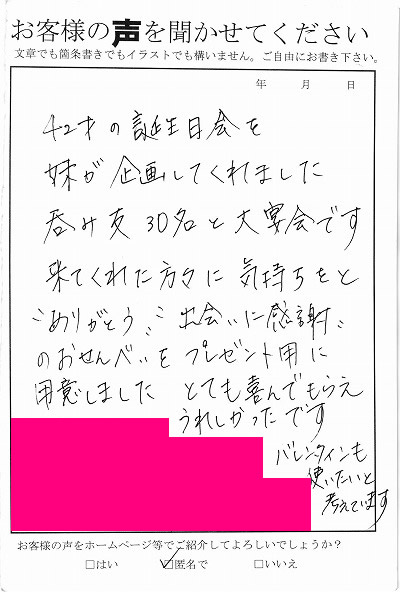 お客様の声を聞かせてください
文章でも箇条書きでもイラストでも構いません。ご自由にお書き下さい。
年 月 日
42才の誕生日会を
妹が企画してくれました
呑み友30名と大宴会です
来てくれた方々に気持ちをと
"ありがとう" "出会いに感謝"
のおせんべいをプレゼント用に
用意しました とても喜んでもらえ
うれしかったです
バレンタインも
使いたいと
考えています
お客様の声をホームページ等でご紹介してよろしいでしょうか?
□はい ☑匿名で □いいえ